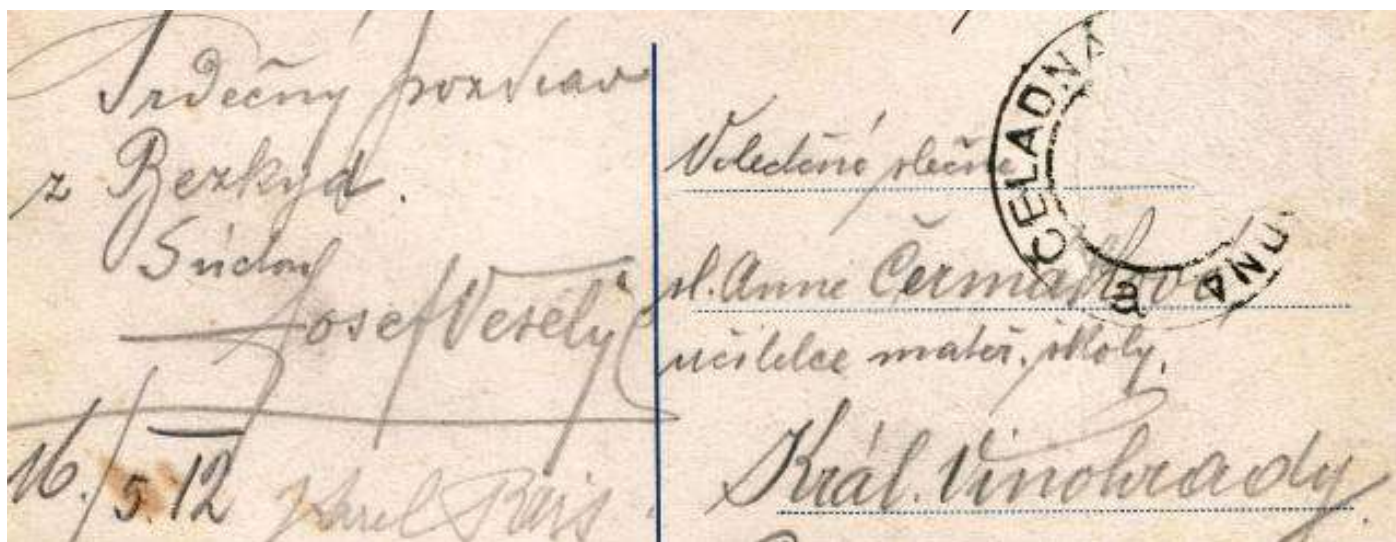 Srdečný pozdrav
z Bezkyd.
Josef Veselý
16./5.12
Karel Rais.
Velectěné slečně
sl. Anně Čermákové
učitelce mateř. školy.
Král. Vinohrady.
ČELADNÁ